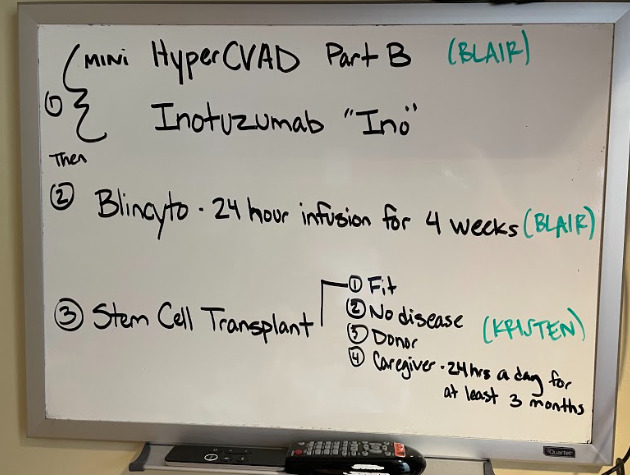 ① { MINI HyperCVAD Part B (BLAIR)
Inotuzumab "Ino"
Then
② Blincyto · 24 hour infusion for 4 weeks (BLAIR)
③ Stem Cell Transplant
① Fit
② No disease
③ Donor
④ Caregiver · 24hrs a day for
at least 3 months
(KRISTEN)
Quartet